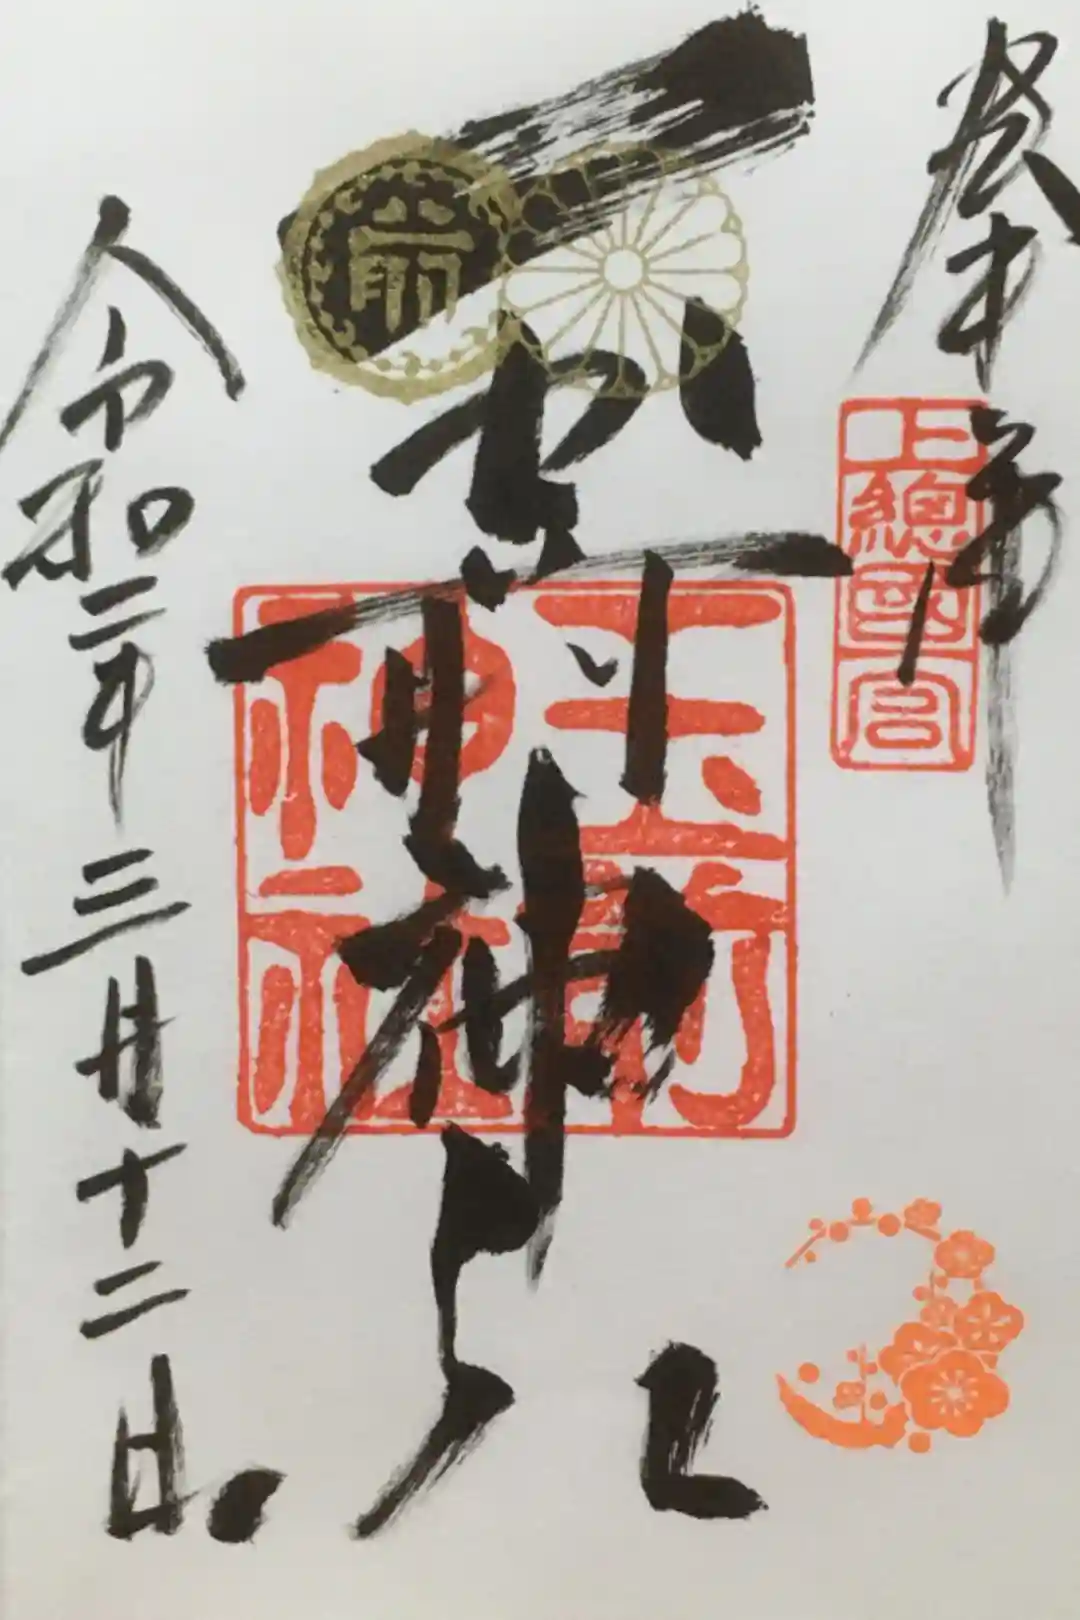 奉拝
上総国宮
玉前神社
玉前神社
前
令和二年三月十二日